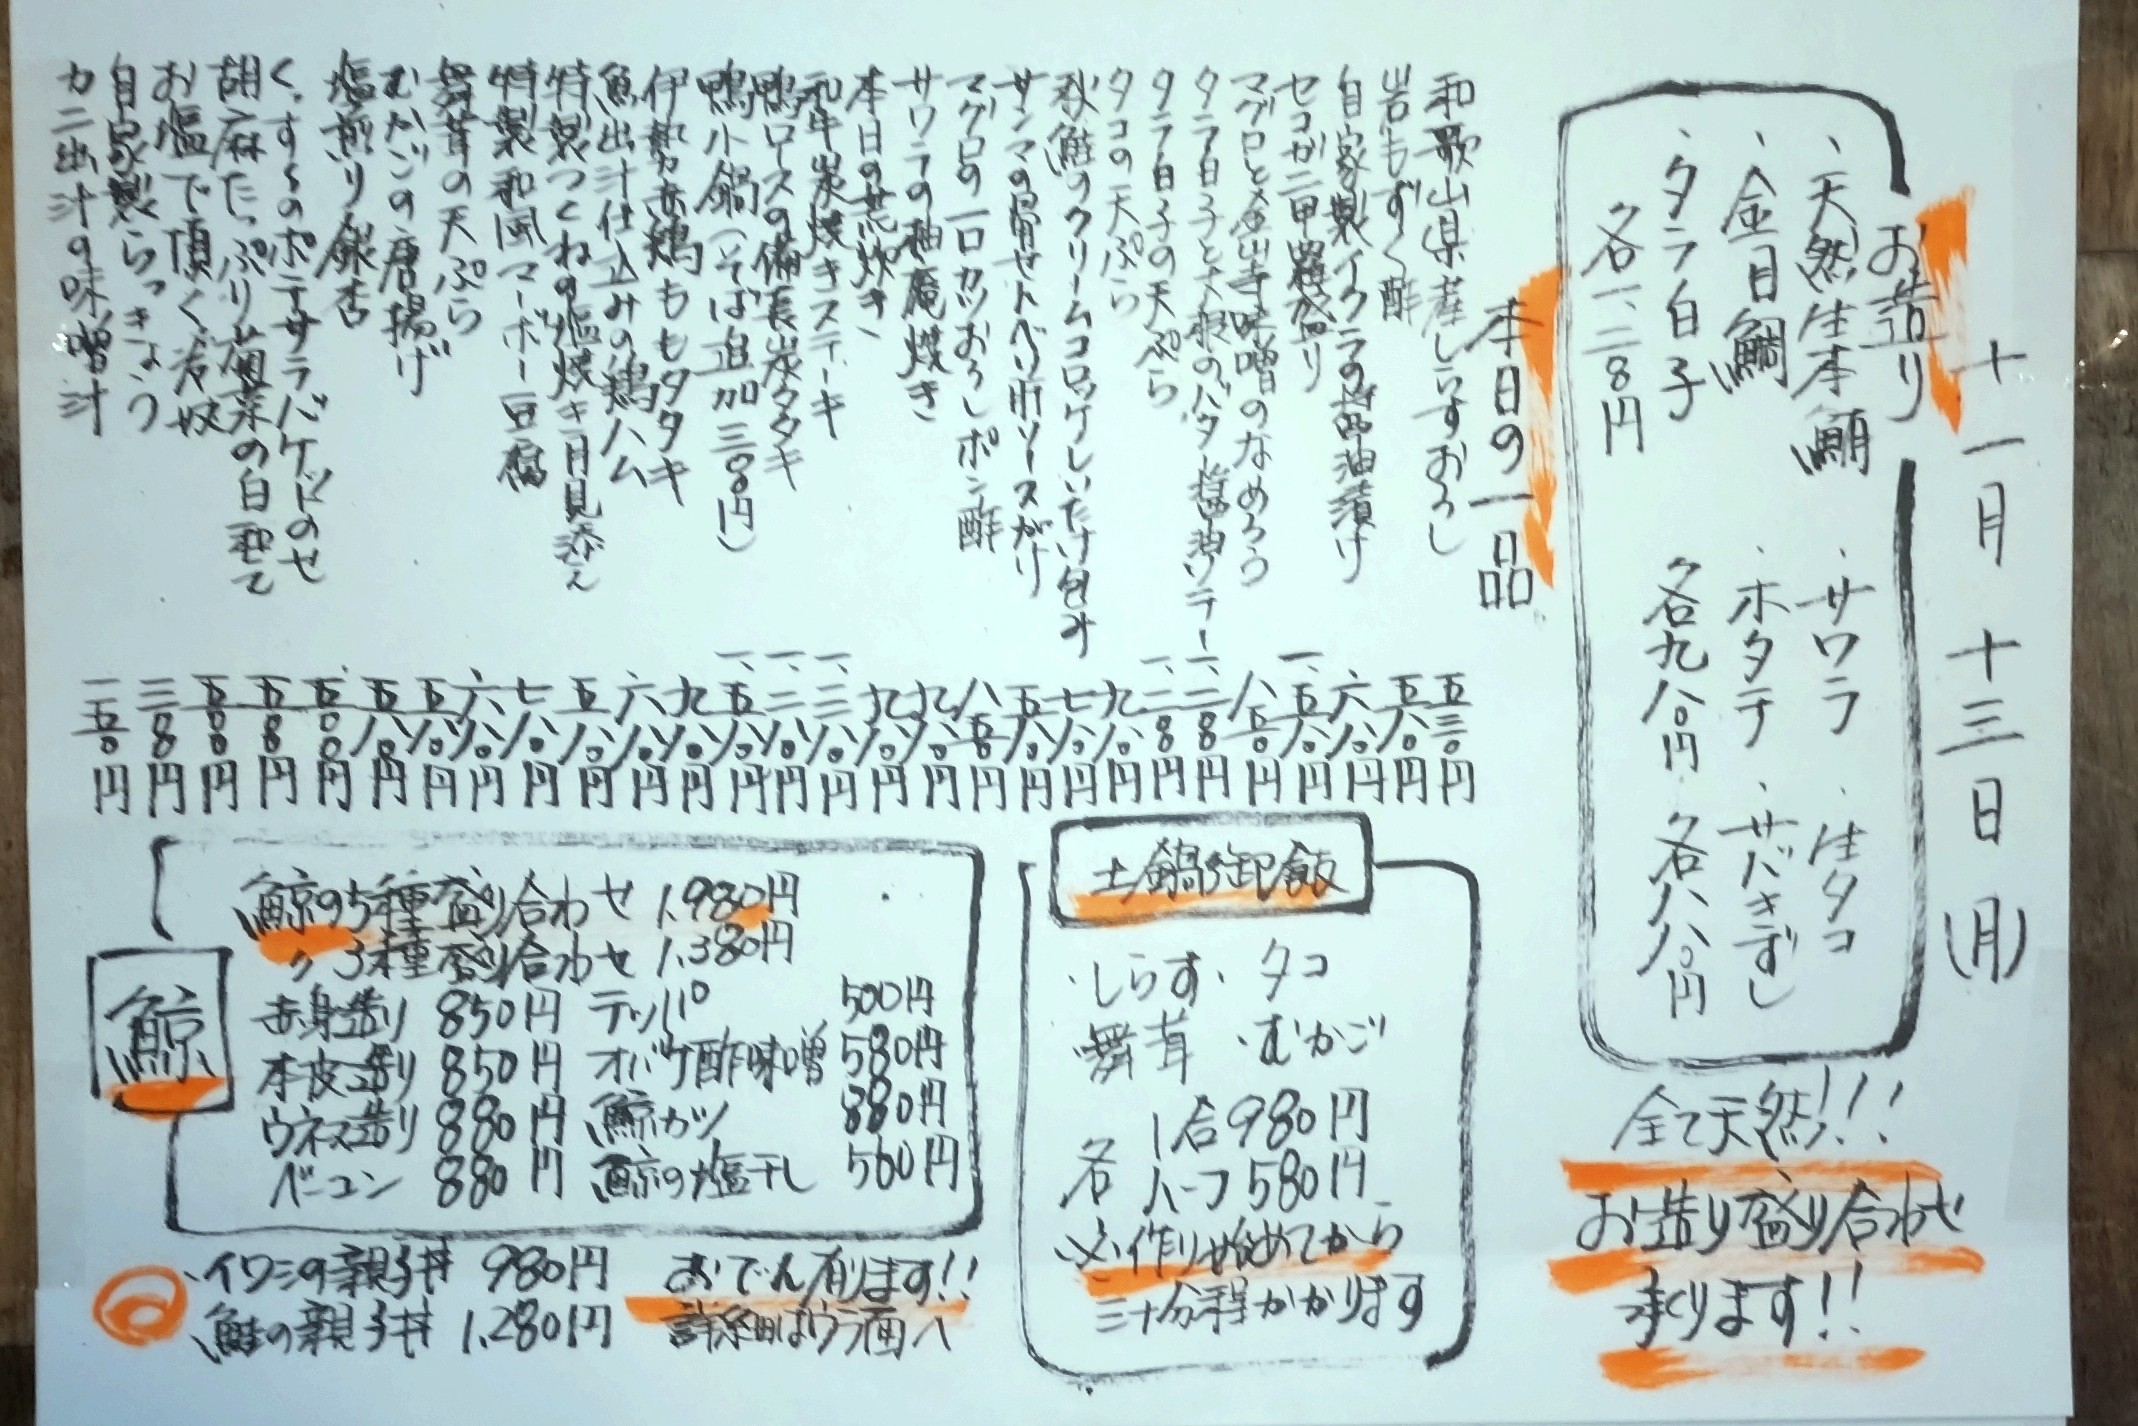 十一月十三日(月)
お造り
・天然生本鮪
・金目鯛
・タラ白子
各一、二八〇円
・サワラ
・ホタテ
各九八〇円
・生タコ
・サバきずし
各八八〇円
全て天然!!!
お造り盛り合わせ
承ります!!
本日の一品
和歌山県産しらすおろし 五三〇円
岩もずく酢 五八〇円
自家製イクラの醤油漬け 六八〇円
セコガニ甲羅盛り 一、五八〇円
マグロと金山寺味噌のなめろう 八五〇円
タラ白子と大根のバター醤油ソテー 一、二八〇円
タラ白子の天ぷら 一、二八〇円
タコの天ぷら 九八〇円
秋鮭のクリームコロッケしいたけ包み 七八〇円
サンマの骨せんべい肝ソースがけ 五八〇円
マグロの一口カツおろしポン酢 八五〇円
サワラの柚庵焼き 九八〇円
本日の荒炊き 九八〇円
和牛炭焼きステーキ 一、三八〇円
鴨ロースの備長炭タタキ 一、二八〇円
鴨小鍋(そば追加三〇〇円) 一、五八〇円
伊勢赤鶏ももタタキ 九八〇円
魚出汁仕込みの鶏ハム 六八〇円
特製つくねの塩焼き月見添え 五八〇円
特製和風マーボー豆腐 七八〇円
舞茸の天ぷら 六八〇円
むかごの唐揚げ 五八〇円
塩煎り銀杏 五八〇円
くんすくのポテサラバケットのせ 五〇〇円
胡麻たっぷり菊菜の白和え 五八〇円
お塩で頂く冷奴 五〇〇円
自家製らっきょう 三八〇円
カニ出汁の味噌汁 一五〇円
土鍋御飯
・しらす・タコ
・舞茸・むかご
各 1合980円
ハーフ580円
※作り始めてから
三十分程かかります
鯨
鯨の5種盛り合わせ 1,980円
〃 3種盛り合わせ 1,380円
赤身造り 850円 テッパ 500円
本皮造り 850円 オバケ酢味噌 580円
ウネス造り 880円 鯨カツ 880円
ベーコン 880円 鯨の塩干し 560円
・イワシの親子丼 980円
・鮭の親子丼 1,280円
おでん有ります!!
詳細はウラ面へ